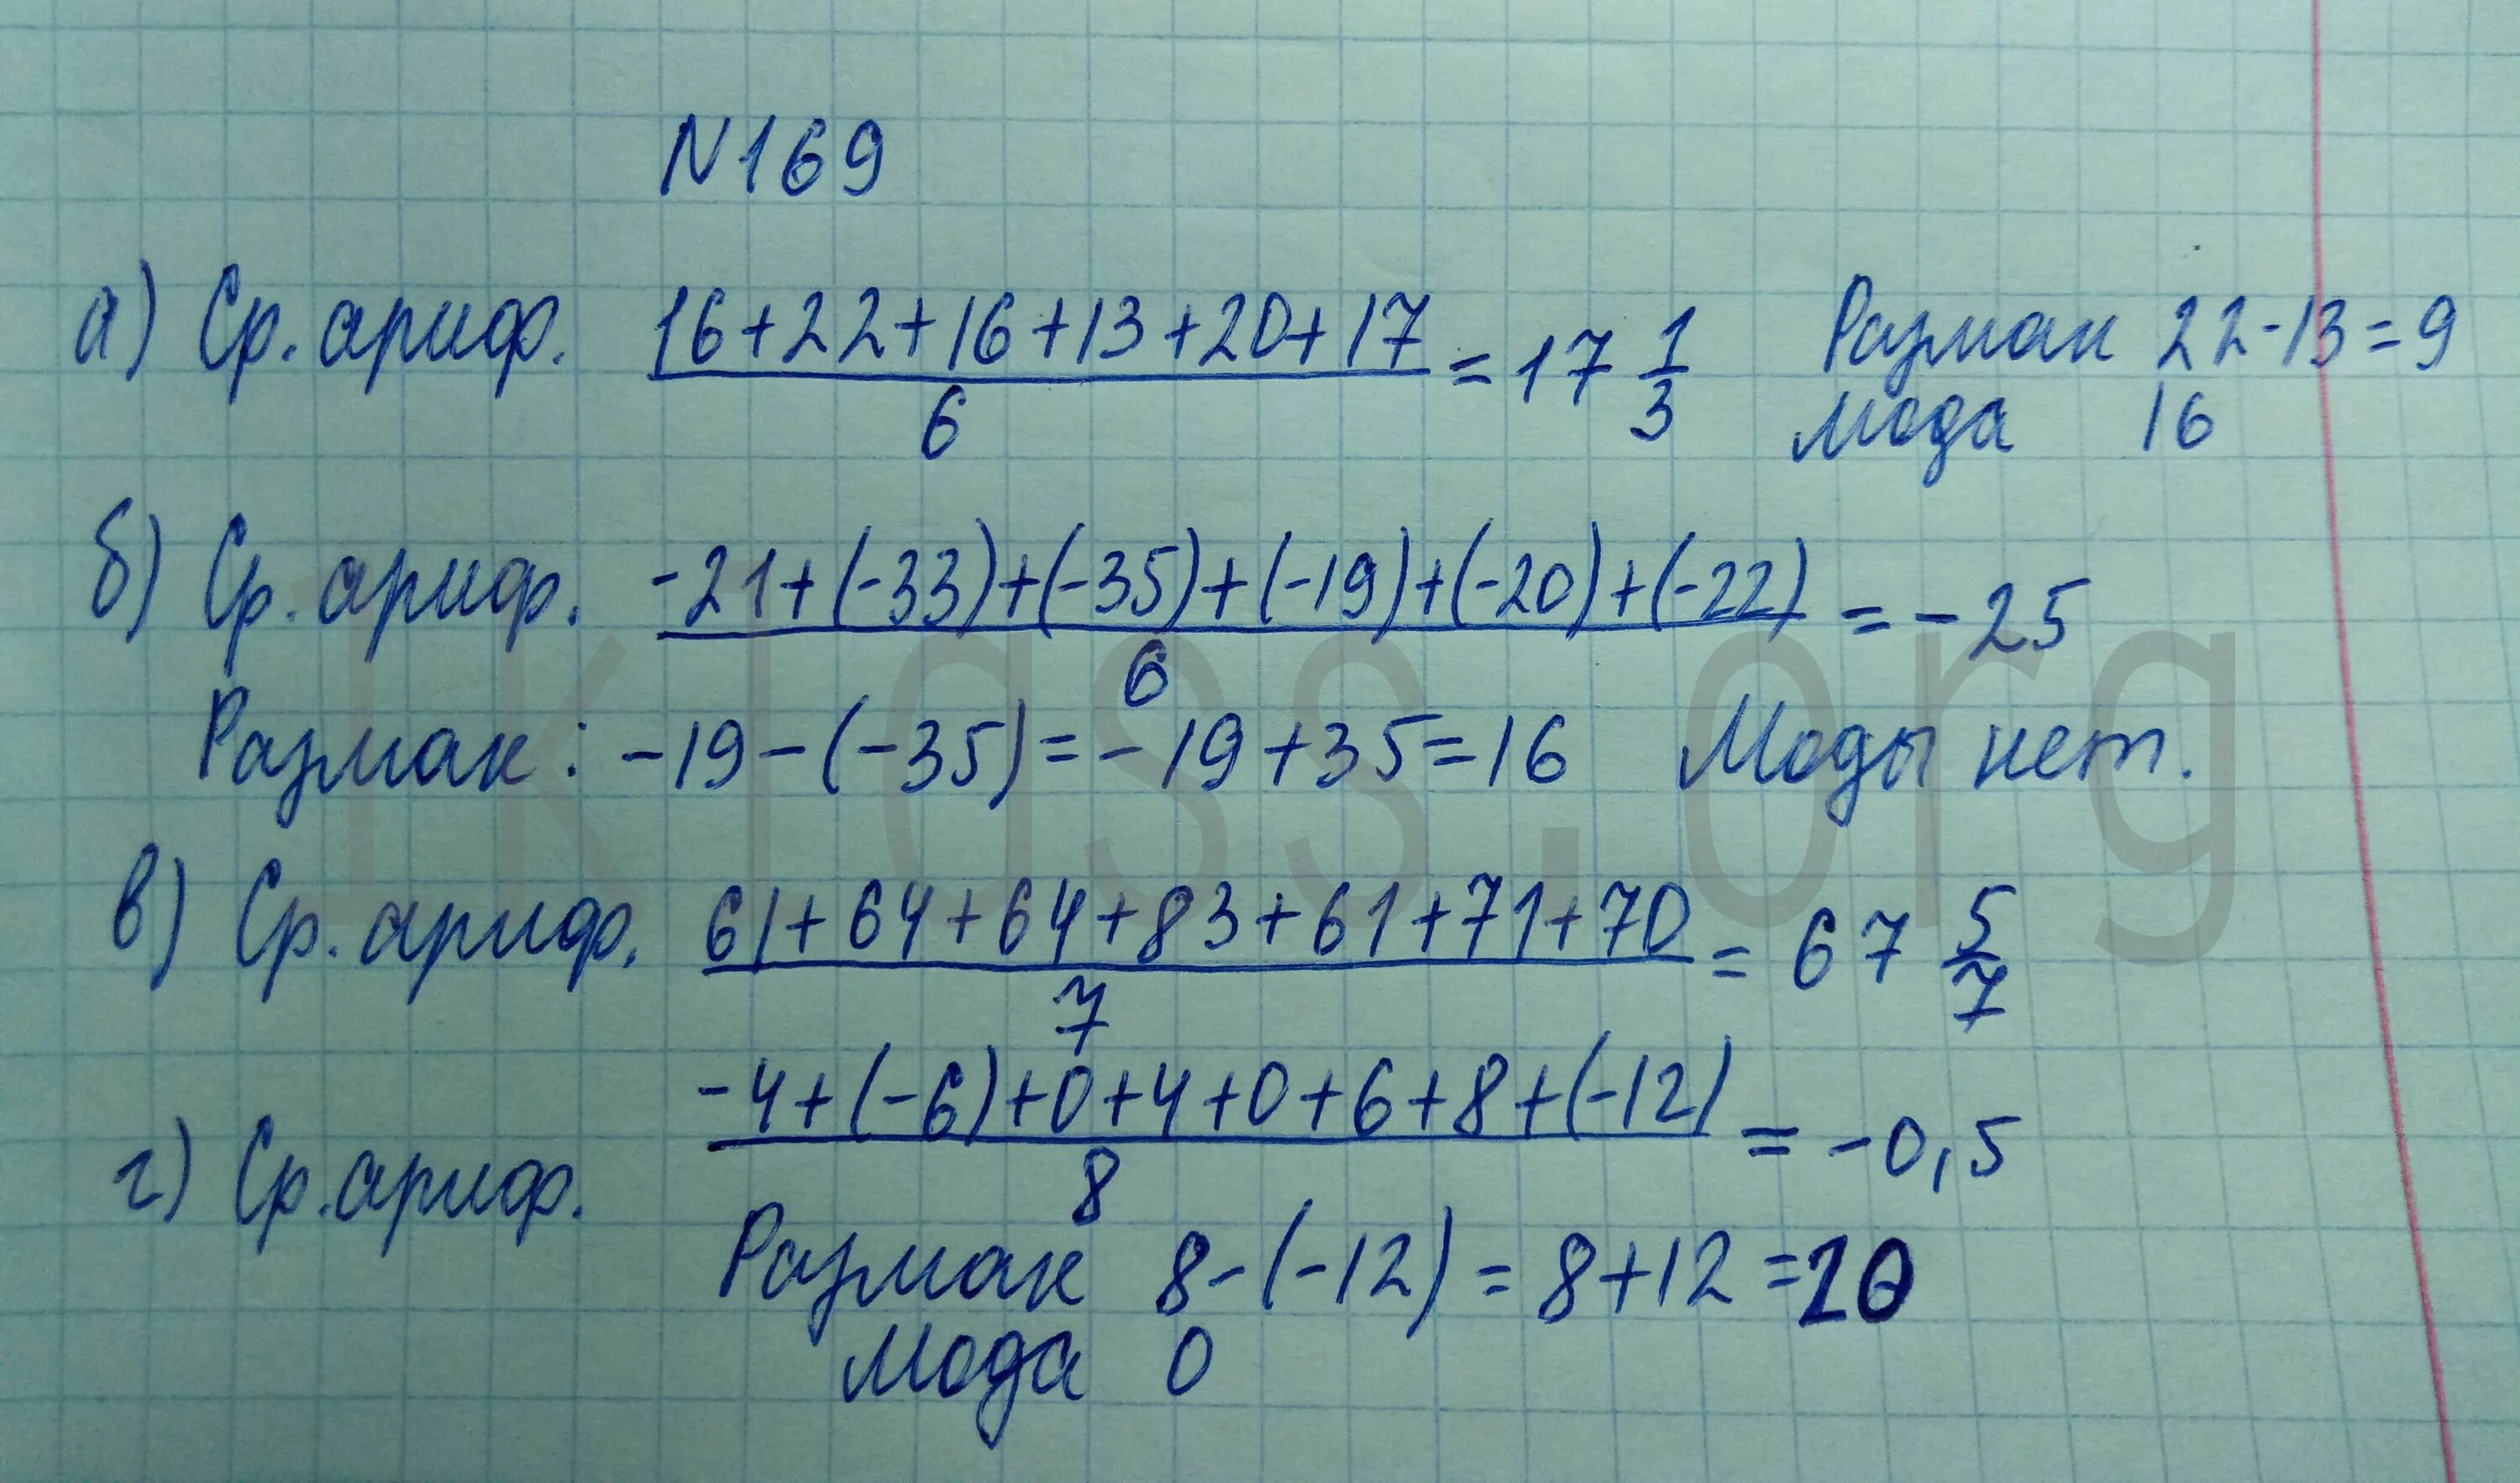 N169
а) Ср. ариф. (16+22+16+13+20+17)/6 = 17 1/3 Размах 22-13=9
мода 16
б) Ср. ариф. (-21+(-33)+(-35)+(-19)+(-20)+(-22))/6 = -25
Размах: -19-(-35)=-19+35=16 Моды нет.
в) Ср. ариф. (61+64+64+83+61+71+70)/7 = 67 5/7
г) Ср. ариф. (-4+(-6)+0+4+0+6+8+(-12))/8 = -0,5
Размах 8-(-12)=8+12=20
Мода 0
1klass.org